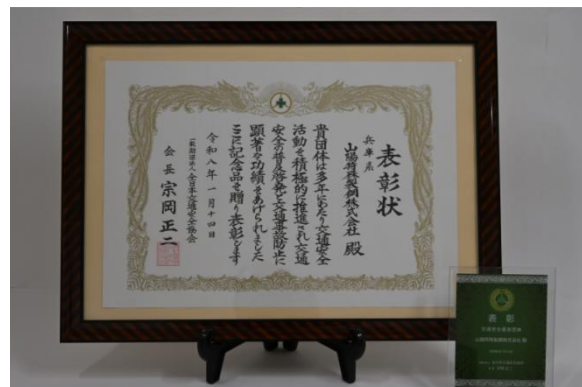 表彰状
兵庫県
山陽特殊製鋼株式会社 殿
貴団体は多年にわたり交通安全
活動を積極的に推進され交通
安全の普及啓発と交通事故防止に
顕著な功績をあげられました
ここに記念品を贈り表彰します
令和八年一月十四日
一般財団法人 全日本交通安全協会
会長 宗岡正二
表彰
山陽特殊製鋼株式会社 殿